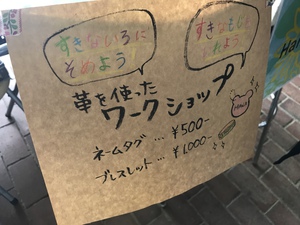 すきないろに
そめよう!
すきなもじ
いれよう
革を使った
ワークショップ
ネームタグ … ¥500-
ブレスレット … ¥1,000-